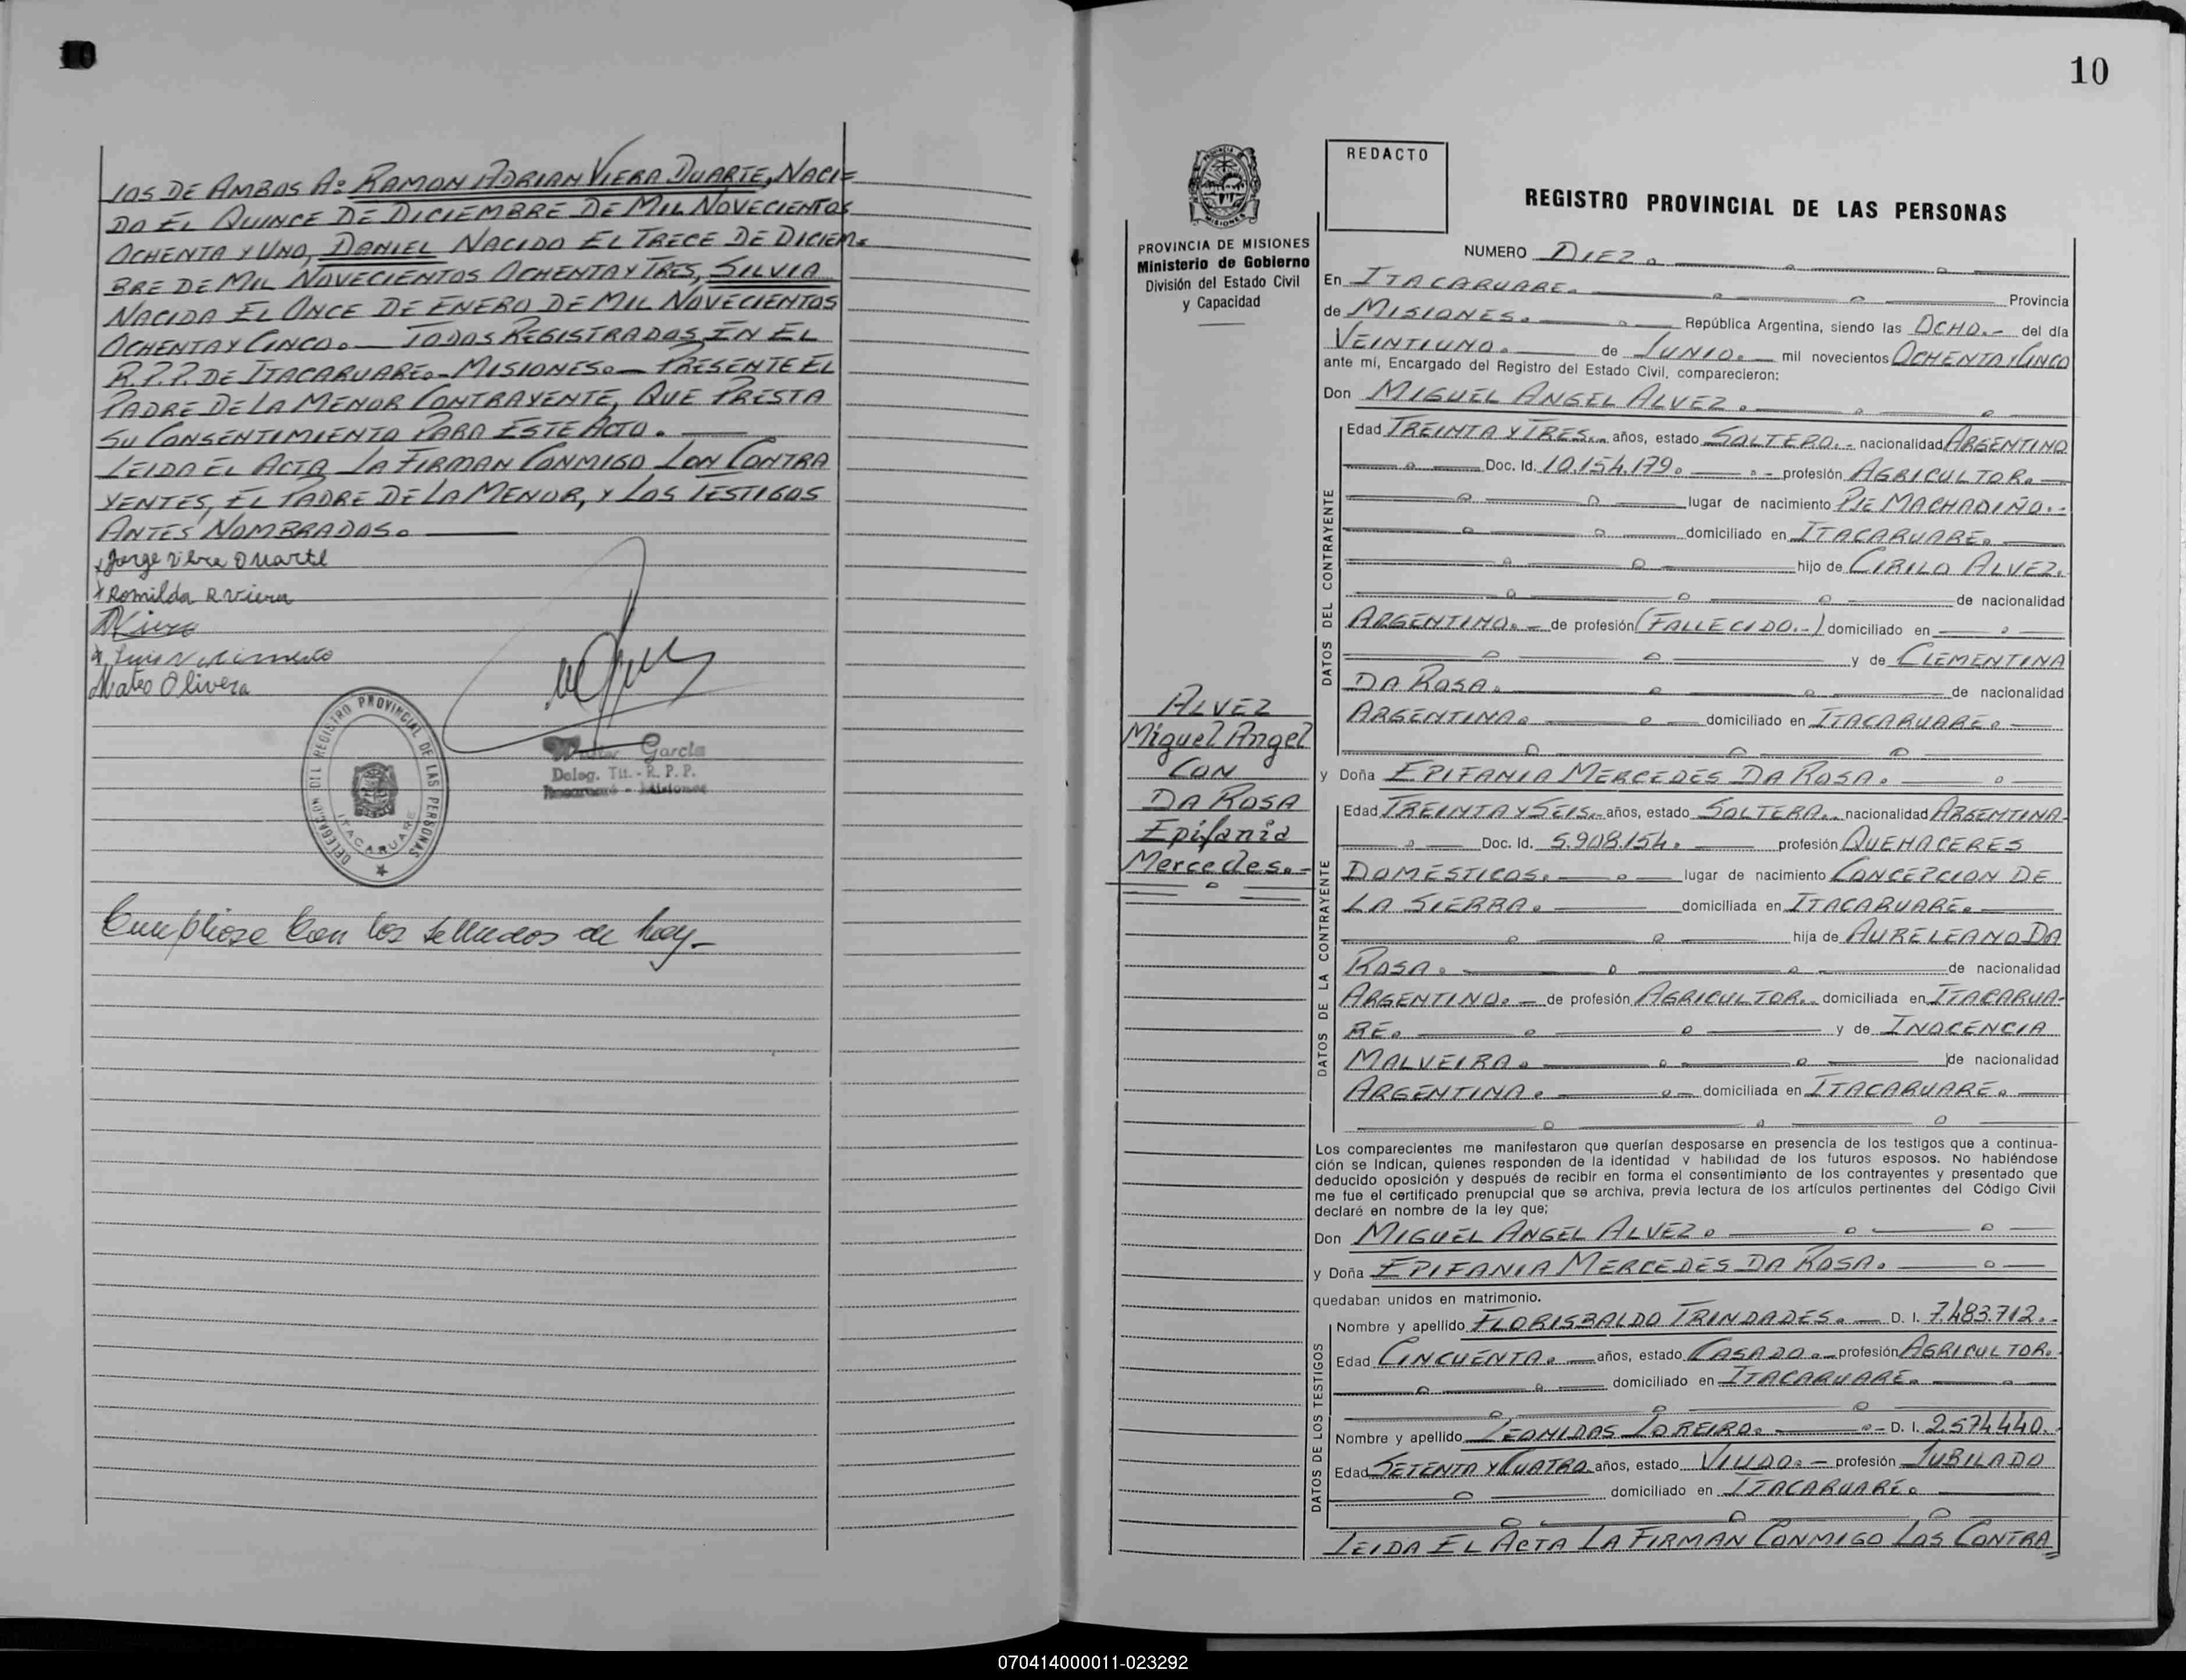 10
IOS DE AMBOS A: RAMON ADRIAN VIERA DUARTE, NACI=
DO EL QUINCE DE DICIEMBRE DE MIL NOVECIENTOS
OCHENTA Y UNO, DANIEL NACIDO EL TRECE DE DICIEM=
BRE DE MIL NOVECIENTOS OCHENTA Y TRES, SILVIA
NACIDA EL ONCE DE ENERO DE MIL NOVECIENTOS
OCHENTA Y CINCO. — TODOS REGISTRADOS EN EL
R.P.P. DE ITACARUARE.- MISIONES.— PRESENTE EL
PADRE DE LA MENOR CONTRAYENTE, QUE PRESTA
SU CONSENTIMIENTO PARA ESTE ACTO. —
LEIDA EL ACTA LA FIRMAN CONMIGO LON CONTRA
YENTES, EL PADRE DE LA MENOR, Y LOS TESTIGOS
ANTES NOMBRADOS. —
x Jorge Viera Duarte
x Romilda R Viera
Mateo Olivera
García
Deleg. Tit. - R. P. P.
Itacaruaré - Misiones
DELEGACION DEL REGISTRO PROVINCIAL DE LAS PERSONAS
ITACARUARE
Cumpliose con los sellados de hoy.-
10
PROVINCIA DE MISIONES
Ministerio de Gobierno
División del Estado Civil
y Capacidad
ALVEZ
Miguel Angel
CON
DA ROSA
Epifania
Mercedes.-
REDACTO
REGISTRO PROVINCIAL DE LAS PERSONAS
NUMERO DIEZ.
En ITACARUARE. Provincia
de MISIONES. República Argentina, siendo las OCHO.- del día
VEINTIUNO. de JUNIO. mil novecientos OCHENTA Y CINCO
ante mí, Encargado del Registro del Estado Civil, comparecieron:
Don MIGUEL ANGEL ALVEZ.
DATOS DEL CONTRAYENTE
Edad TREINTA Y TRES.- años, estado SOLTERO.- nacionalidad ARGENTINO
Doc. Id. 10.154.179. profesión AGRICULTOR.
lugar de nacimiento PJE MACHADIÑO.-
domiciliado en ITACARUARE.
hijo de CIRILO ALVEZ.
de nacionalidad
ARGENTINO.- de profesión (FALLECIDO.-) domiciliado en
y de CLEMENTINA
DA ROSA. de nacionalidad
ARGENTINA. domiciliado en ITACARUARE.
y Doña EPIFANIA MERCEDES DA ROSA.
DATOS DE LA CONTRAYENTE
Edad TREINTA Y SEIS.- años, estado SOLTERA.- nacionalidad ARGENTINA-
Doc. Id. 5.908.154. profesión QUEHACERES
DOMÉSTICOS. lugar de nacimiento CONCEPCION DE
LA SIERRA. domiciliada en ITACARUARE.
hija de AURELEANO DA
ROSA. de nacionalidad
ARGENTINO.- de profesión AGRICULTOR. domiciliada en ITACARUA-
RE. y de INOCENCIA
MALVEIRA. de nacionalidad
ARGENTINA. domiciliada en ITACARUARE.
Los comparecientes me manifestaron que querían desposarse en presencia de los testigos que a continua-
ción se indican, quienes responden de la identidad y habilidad de los futuros esposos. No habiéndose
deducido oposición y después de recibir en forma el consentimiento de los contrayentes y presentado que
me fue el certificado prenupcial que se archiva, previa lectura de los artículos pertinentes del Código Civil
declaré en nombre de la ley que;
Don MIGUEL ANGEL ALVEZ.
y Doña EPIFANIA MERCEDES DA ROSA.
quedaban unidos en matrimonio.
DATOS DE LOS TESTIGOS
Nombre y apellido FLORISBALDO TRINDADES. — D. I. 7.483.712.-
Edad CINCUENTA. años, estado CASADO.- profesión AGRICULTOR.
domiciliado en ITACARUARE.
Nombre y apellido LEONIDAS LOREIRO. D. I. 2.574.440.
Edad SETENTA Y CUATRO años, estado VIUDO.- profesión JUBILADO
domiciliado en ITACARUARE.
LEIDA EL ACTA LA FIRMAN CONMIGO LOS CONTRA=
070414000011-023292